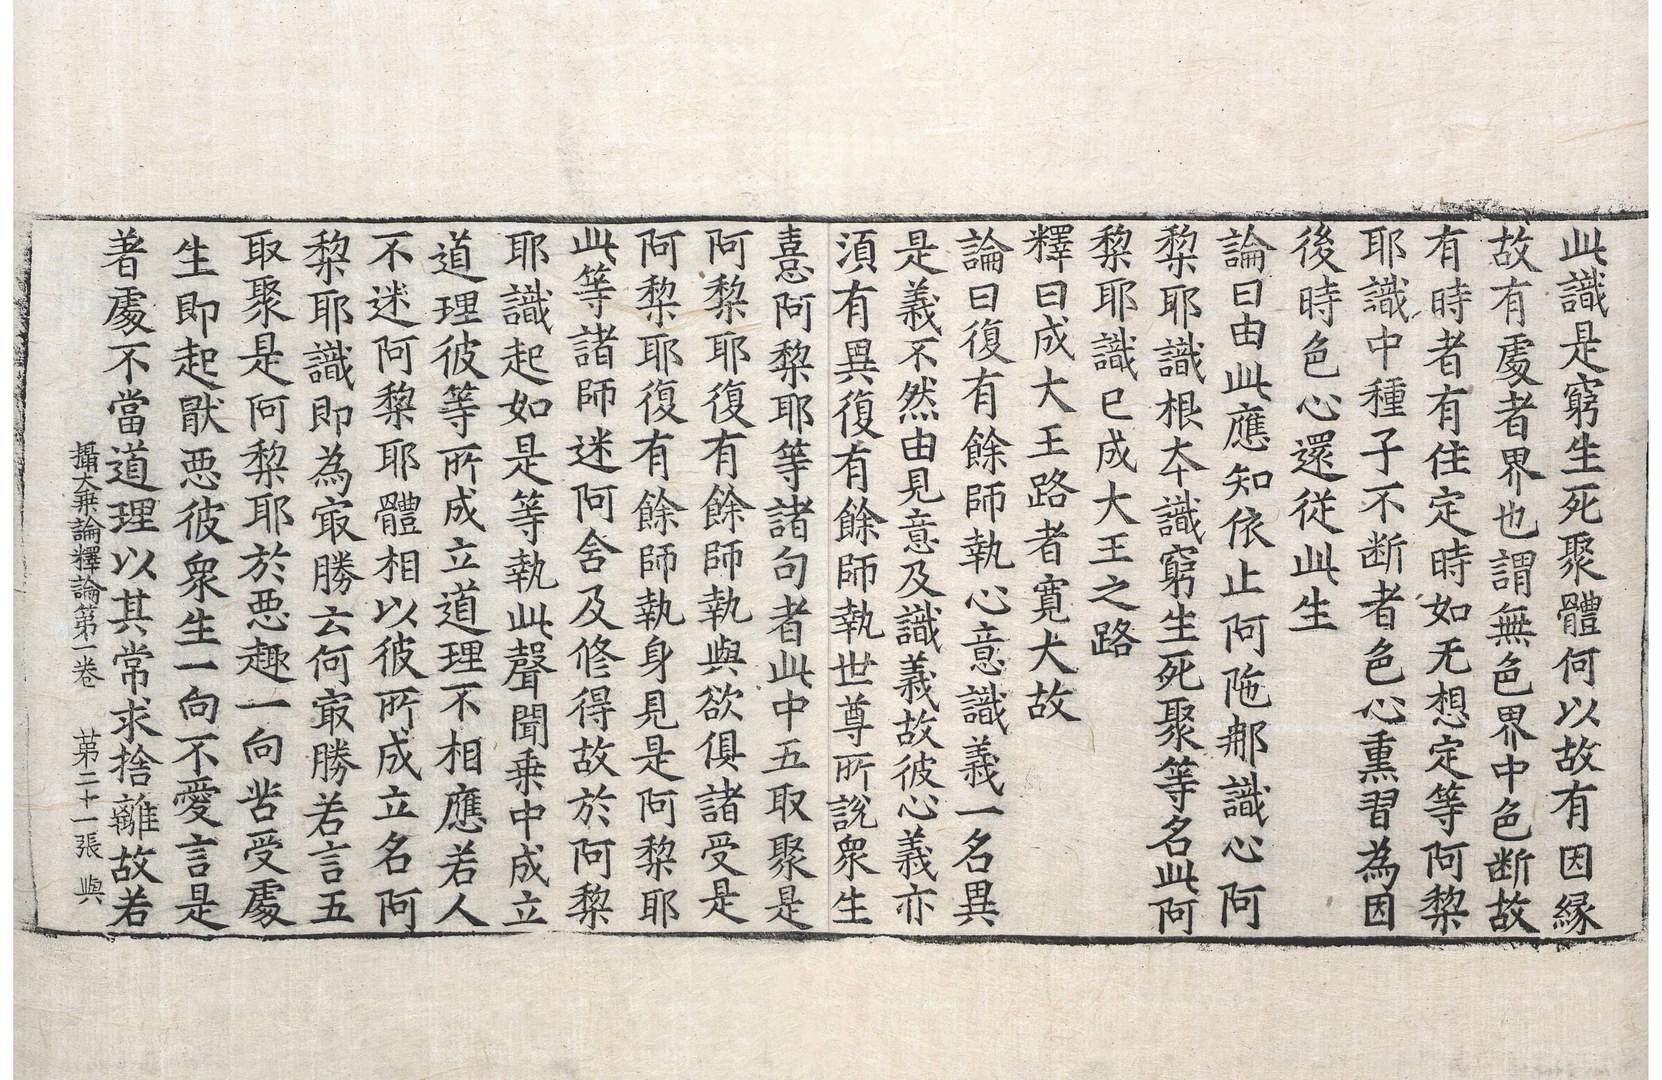 此識是窮生死聚體何以故有因緣
故有處者界也謂無色界中色断故
有時者有住定時如无想定等阿棃
耶識中種子不断者色心熏習為因
後時色心還從此生
論曰由此應知依止阿陁那識心阿
棃耶識根本識窮生死聚等名此阿
棃耶識已成大王之路
釋曰成大王路者寛大故
論曰復有餘師執心意識義一名異
是義不然由見意及識義故彼心義亦
湏有異復有餘師執世尊所說衆生
憙阿棃耶等諸句者此中五取聚是
阿棃耶復有餘師執與欲俱諸受是
阿棃耶復有餘師執身見是阿棃耶
此等諸師迷阿含及修得故於阿棃
耶識起如是等執此聲聞乗中成立
道理彼等所成立道理不相應若人
不迷阿棃耶體相以彼所成立名阿
棃耶識即為㝡勝云何㝡勝若言五
取聚是阿棃耶於惡趣一向苦受處
生即起猒惡彼衆生一向不愛言是
著處不當道理以其常求捨離故若
攝大乗論釋論第一卷 第二十一張 與